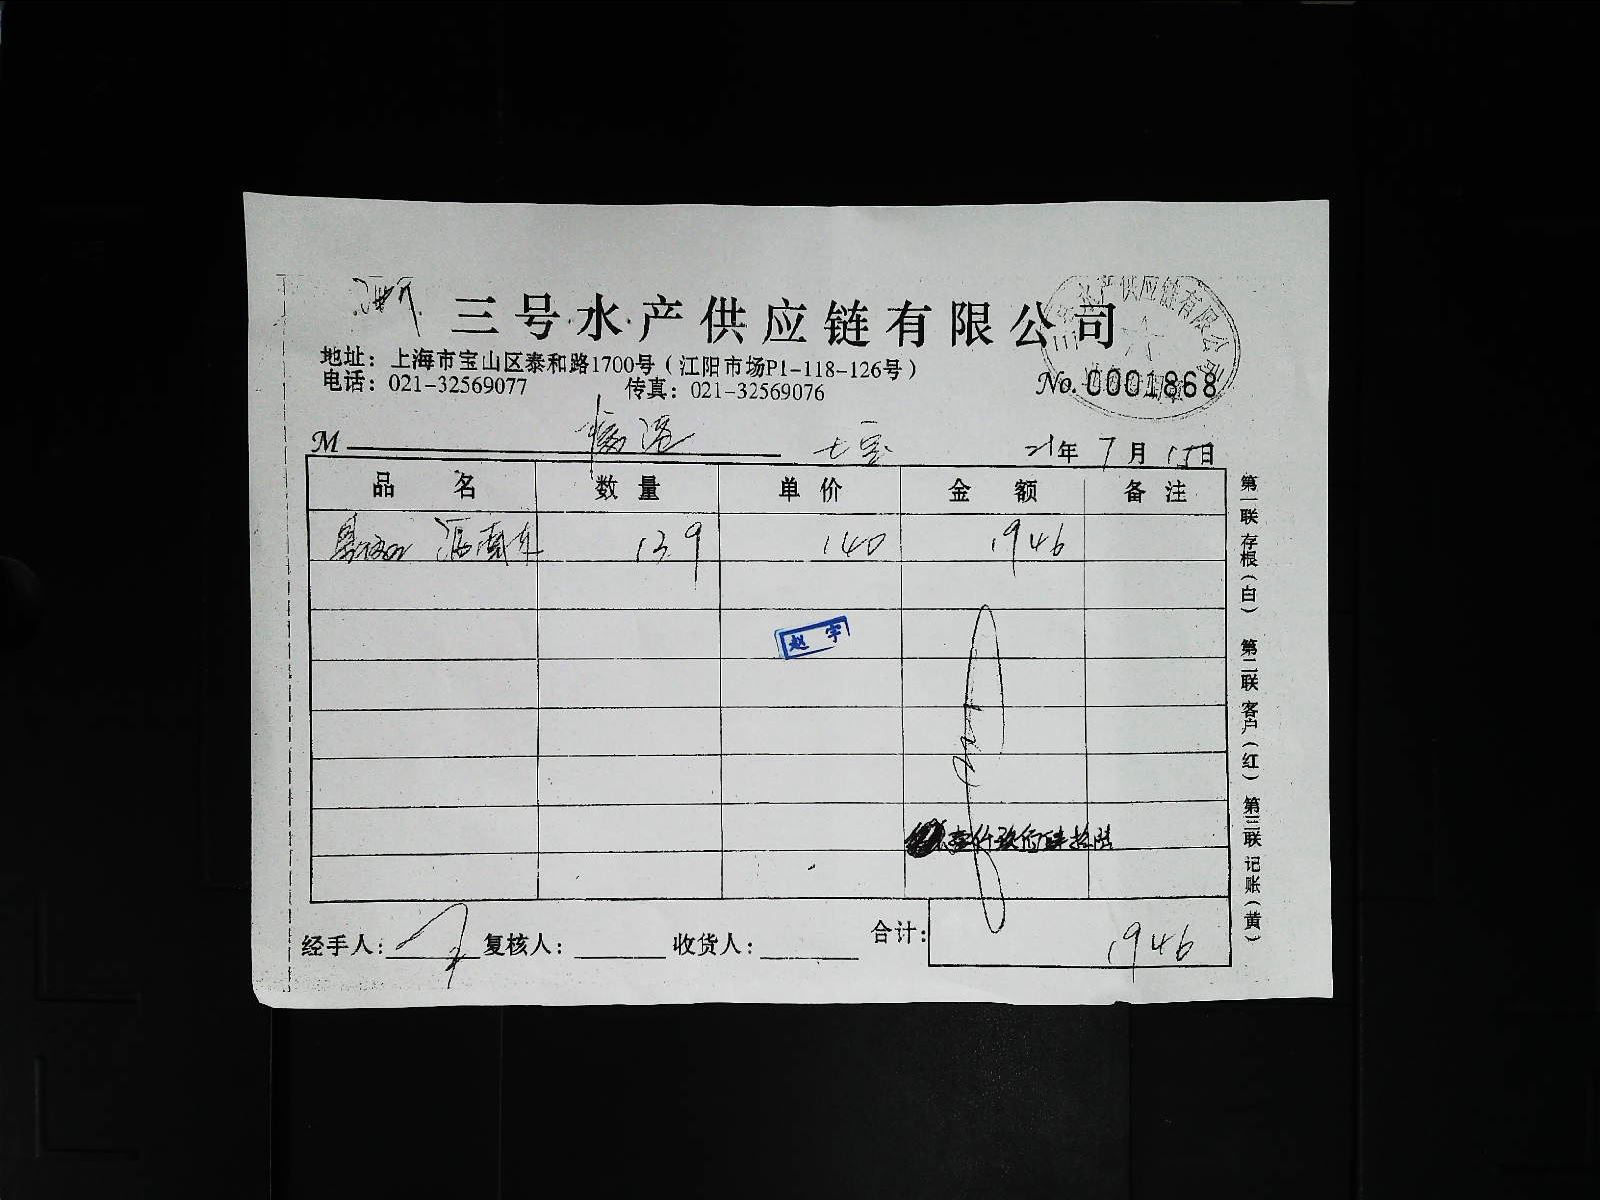 三号水产供应链有限公司
水产供应链有限公司
地址：上海市宝山区泰和路1700号（江阳市场P1-118-126号）
电话：021-32569077 传真：021-32569076 No. 0001868
M 七宝 21年 7月 15日
品名 数量 单价 金额 备注
139 140 1946
赵宇
壹仟玖佰肆拾陆
经手人： 复核人： 收货人： 合计： 1946
第一联 存根（白） 第二联 客户（红） 第三联 记账（黄）